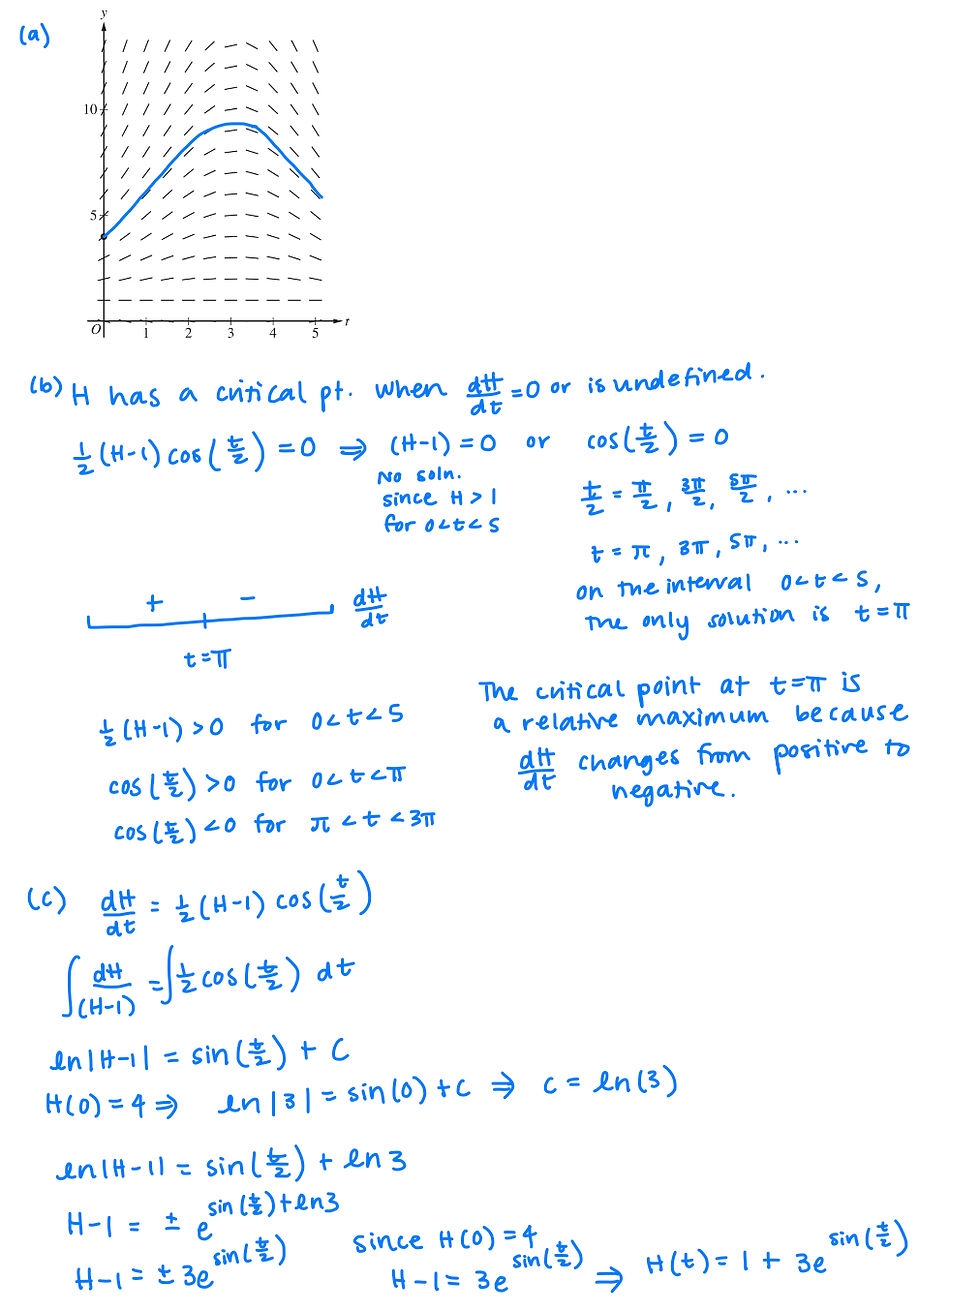 (a)
y
10
5
O 1 2 3 4 5 t
(b) H has a critical pt. when dH/dt = 0 or is undefined.
½(H-1) cos(t/2) = 0 ⇒ (H-1) = 0 or cos(t/2) = 0
No soln.
since H > 1
for 0<t<5
t/2 = π/2, 3π/2, 5π/2, ...
t = π, 3π, 5π, ...
on the interval 0<t<5,
the only solution is t=π
+ - dH/dt
t=π
½(H-1)>0 for 0<t<5
cos(t/2) >0 for 0<t<π
cos(t/2) <0 for π<t<3π
The critical point at t=π is
a relative maximum because
dH/dt changes from positive to
negative.
(c) dH/dt = ½(H-1) cos(t/2)
∫ dH/(H-1) = ∫ ½ cos(t/2) dt
ln|H-1| = sin(t/2) + C
H(0) = 4 ⇒ ln|3| = sin(0) + C ⇒ C = ln(3)
ln|H-1| = sin(t/2) + ln3
H-1 = ± e^(sin(t/2)+ln3)
H-1 = ± 3e^(sin(t/2))
since H(0) = 4
H-1 = 3e^(sin(t/2)) ⇒ H(t) = 1 + 3e^(sin(t/2))